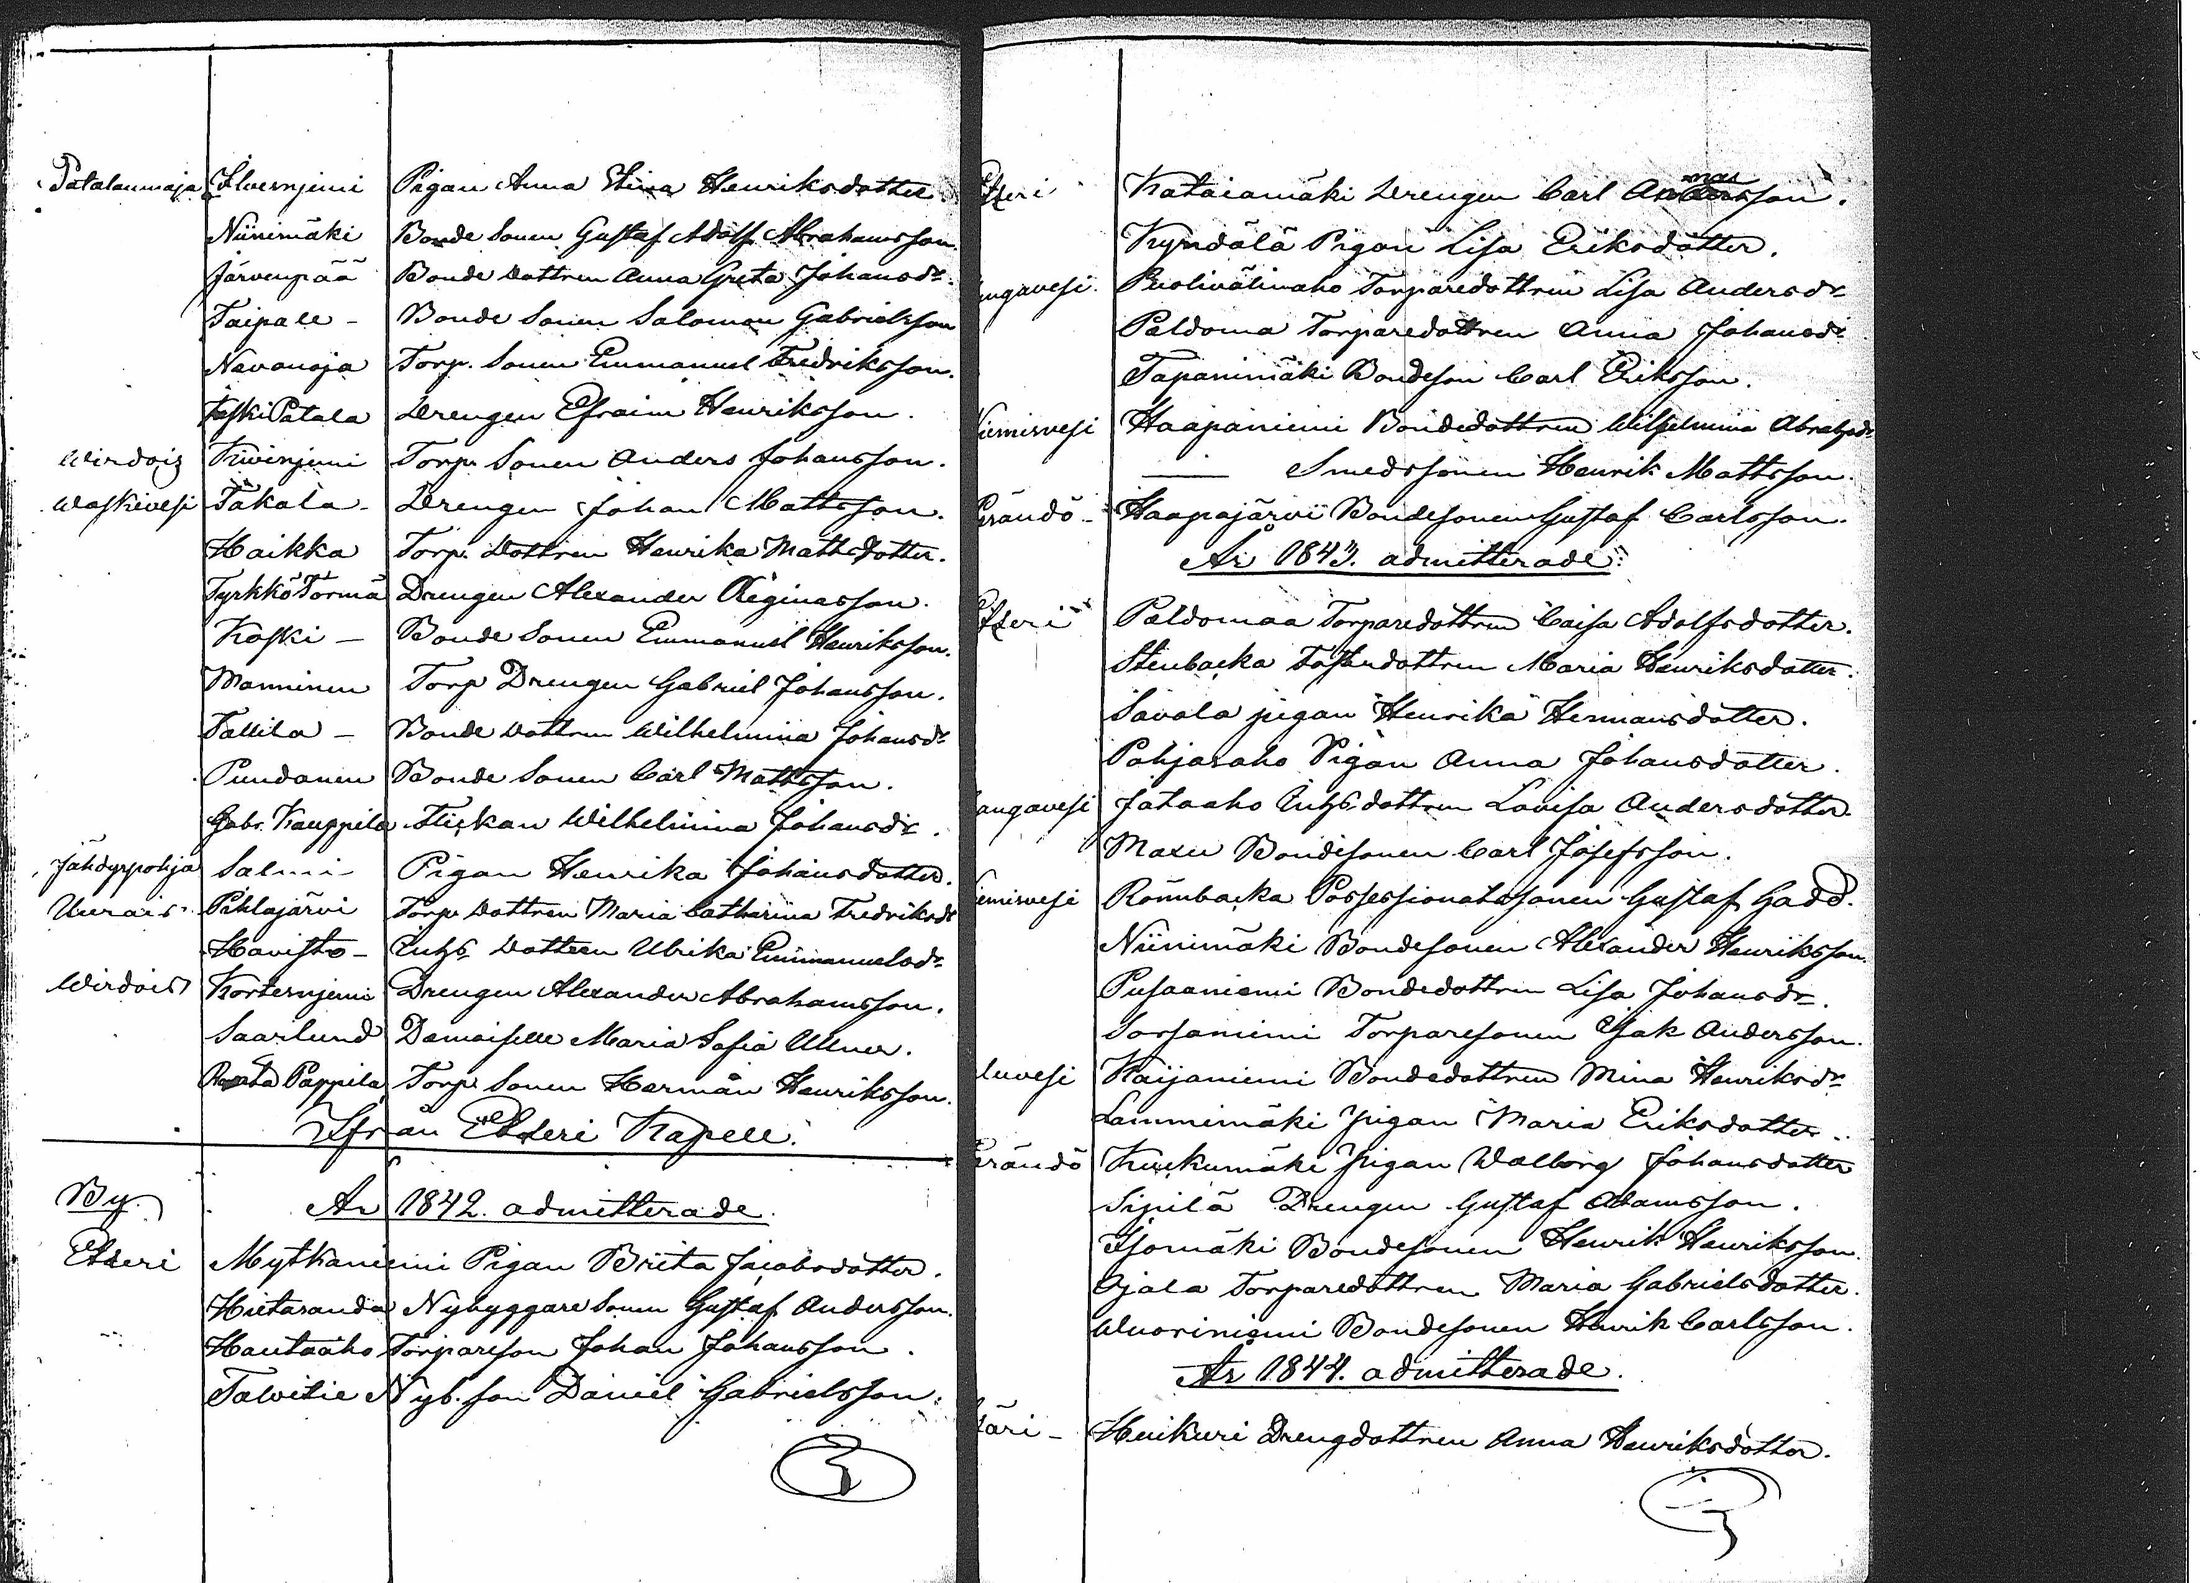 Patalanmaja Ilvesnjemi Pigan Anna Stina Henriksdotter.
Niinimäki Bonde Sonen Gustaf Adolf Abrahamsson.
Järvenpää Bonde Dottren Anna Greta Johansdr.
Taipale - Bonde Sonen Salomon Gabrielsson
Navanoja Torp. Sonen Emmanuel Fredriksson.
Koski Patala Drengen Efraim Henriksson.
Wirdois Kivinjemi Torp. Sonen Anders Johansson.
Waskivesi Täkälä - Drengen Johan Mattsson.
Haikka Torp. Dottren Henrika Mattsdotter.
Tyrkkö Törmä Drengen Alexander Reginasson.
Koski - Bonde Sonen Emmanuel Henriksson.
Manninen Torp Drengen Gabriel Johansson.
Tallila - Bonde Dottren Wilhelmina Johansdr
Pundanen Bonde Sonen Carl Mattsson.
Gabr. Kauppila Flickan Wilhelmina Johansdr.
Jähdyspohja Salmi - Pigan Henrika Johansdotter.
Uurais. Pihlajärvi Torp. Dottren Maria Catharina Fredriksdr
Havisto - Inhs. Dottren Ulrika Emmanuelsdr
Wirdois Kortesnjemi Drengen Alexander Abrahamsson.
Saarlund Demoiselle Maria Sofia Ullner.
Pappila Torp. Sonen Herman Henriksson.
Ifrån Etseri Kapell.
By. Ar 1842. admitterade.
Etseri Mytkäniemi Pigan Briita Jacobsdotter.
Hietaranda Nybyggare Sonen Gustaf Andersson.
Hautaaho Torpareson Johan Johansson.
Talvitie Nyb. son Daniel Gabrielsson.
Etseri Kataiamäki Drengen Carl Annasson.
Kyndälä Pigan Lisa Eriksdotter.
ngavesi. Puolivälinaho Torparedottren Lisa Andersdr
Paldoma Torparedottren Anna Johansdr
Tapaninmäki Bondeson Carl Eriksson.
Niemisvesi Haapaniemi Bondedottren Wilhelmina Abrahsdr
— Smedssonen Henrik Mattsson.
Perändö - Haapajärvi Bondesonen Gustaf Carlsson.
År 1843. admitterade.
Etseri Paldomaa Torparedottren Caisa Adolfsdotter.
Stenbacka Maria Henriksdotter.
Savola pigan Henrika Hermansdotter.
Pohjasaho Pigan Anna Johansdotter.
angavesi Jataaho Inhs. dottren Lovisa Andersdotter.
Maxu Bondesonen Carl Josefsson.
iemisvesi Rönnbacka Possessionatsonen Gustaf Gadd.
Niinimäki Bondesonen Alexander Henriksson.
Pusaaniemi Bondedottren Lisa Johansdr.
Sorsaniemi Torparesonen Isak Andersson.
luvesi Kaijaniemi Bondedottren Mina Henriksdr
Lamminmäki pigan Maria Eriksdotter.
erändö Kuckumäki pigan Walborg Johansdotter
Sipilä Drengen Gustaf Adamsson.
Isomäki Bondesonen Henrik Henriksson.
Ojala Torparedottren Maria Gabrielsdotter.
Wuoriniemi Bondesonen Henrik Carlsson.
År 1844. admitterade.
täri - Huikuri Drengdottren Anna Henriksdotter.